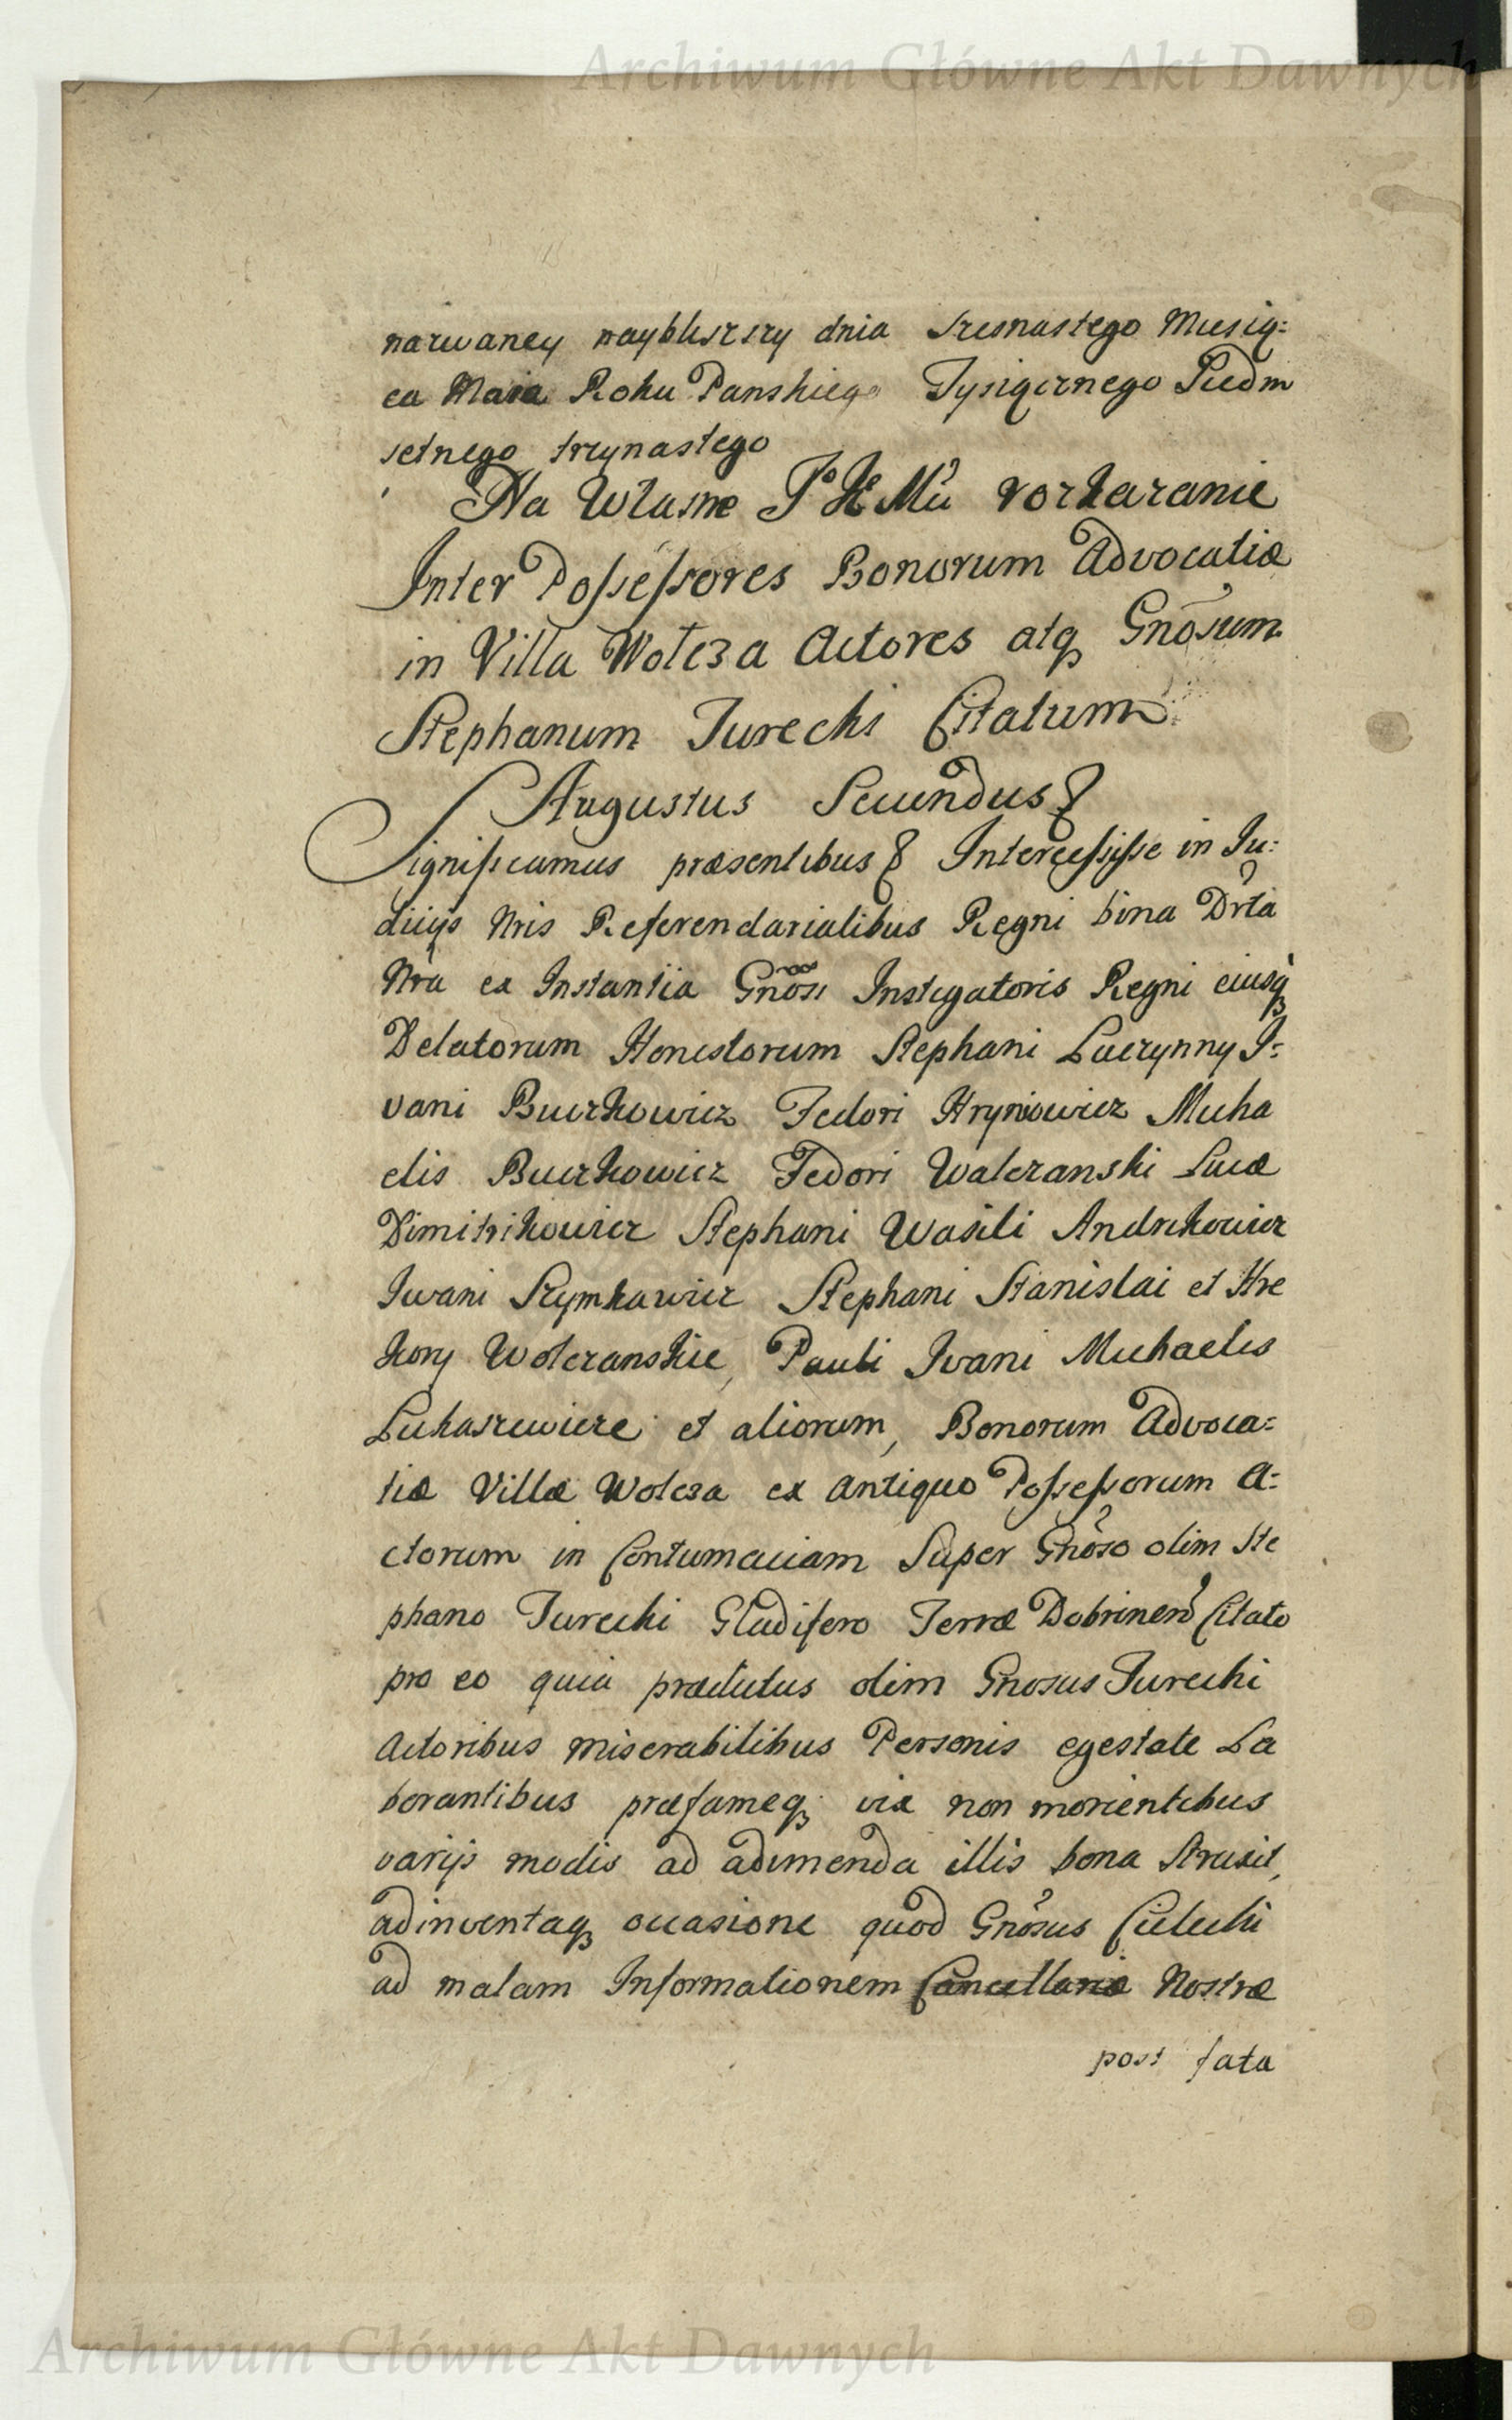 Archiwum Główne Akt Dawnych
narwaney naybliszszy dnia szesnastego Miesią=
ca Maia Roku Panskiego Tysiącznego Siedm
setnego trzynastego
Na Własne J K Mci rozkazanie
Inter Possessores Bonorum Advocatiæ
in Villa Wolcza Actores atq Gnosum
Stephanum Turecki Citatum
Augustus Secundus &
Significamus præsentibus & Intercessisse in Ju=
dicijs Nris Referendarialibus Regni bina Drta
Nra ex Instantia Gnosi Instigatoris Regni eiusq
Delatorum Honestorum Stephani Laczynny I=
vani Buczkowicz Fedori Hryniowicz Micha
elis Buczkowicz Fedori Walczanski Lucæ
Dimitrikowicz Stephani Wasili Andrikowicz
Iwani Szymkawicz Stephani Stanislai et Hre
hory Wolczanskie, Pauli Ivani Michaelis
Lukaszewicze et aliorum, Bonorum Advoca=
tiæ Villæ Wolcza ex antiquo Possessorum A=
ctorum in Contumaciam Super Gnoso olim Ste
phano Turecki Gladifero Terræ Dobrinen Citato
pro eo quia prædictus olim Gnosus Turecki
Actoribus miserabilibus Personis egestate La
borantibus præfameq vix non morientibus
varijs modis ad adimenda illis bona Struxit,
adinventaq occasione quod Gnosus
ad malam Informationem Cancellariæ Nostræ
post fata
Archiwum Główne Akt Dawnych